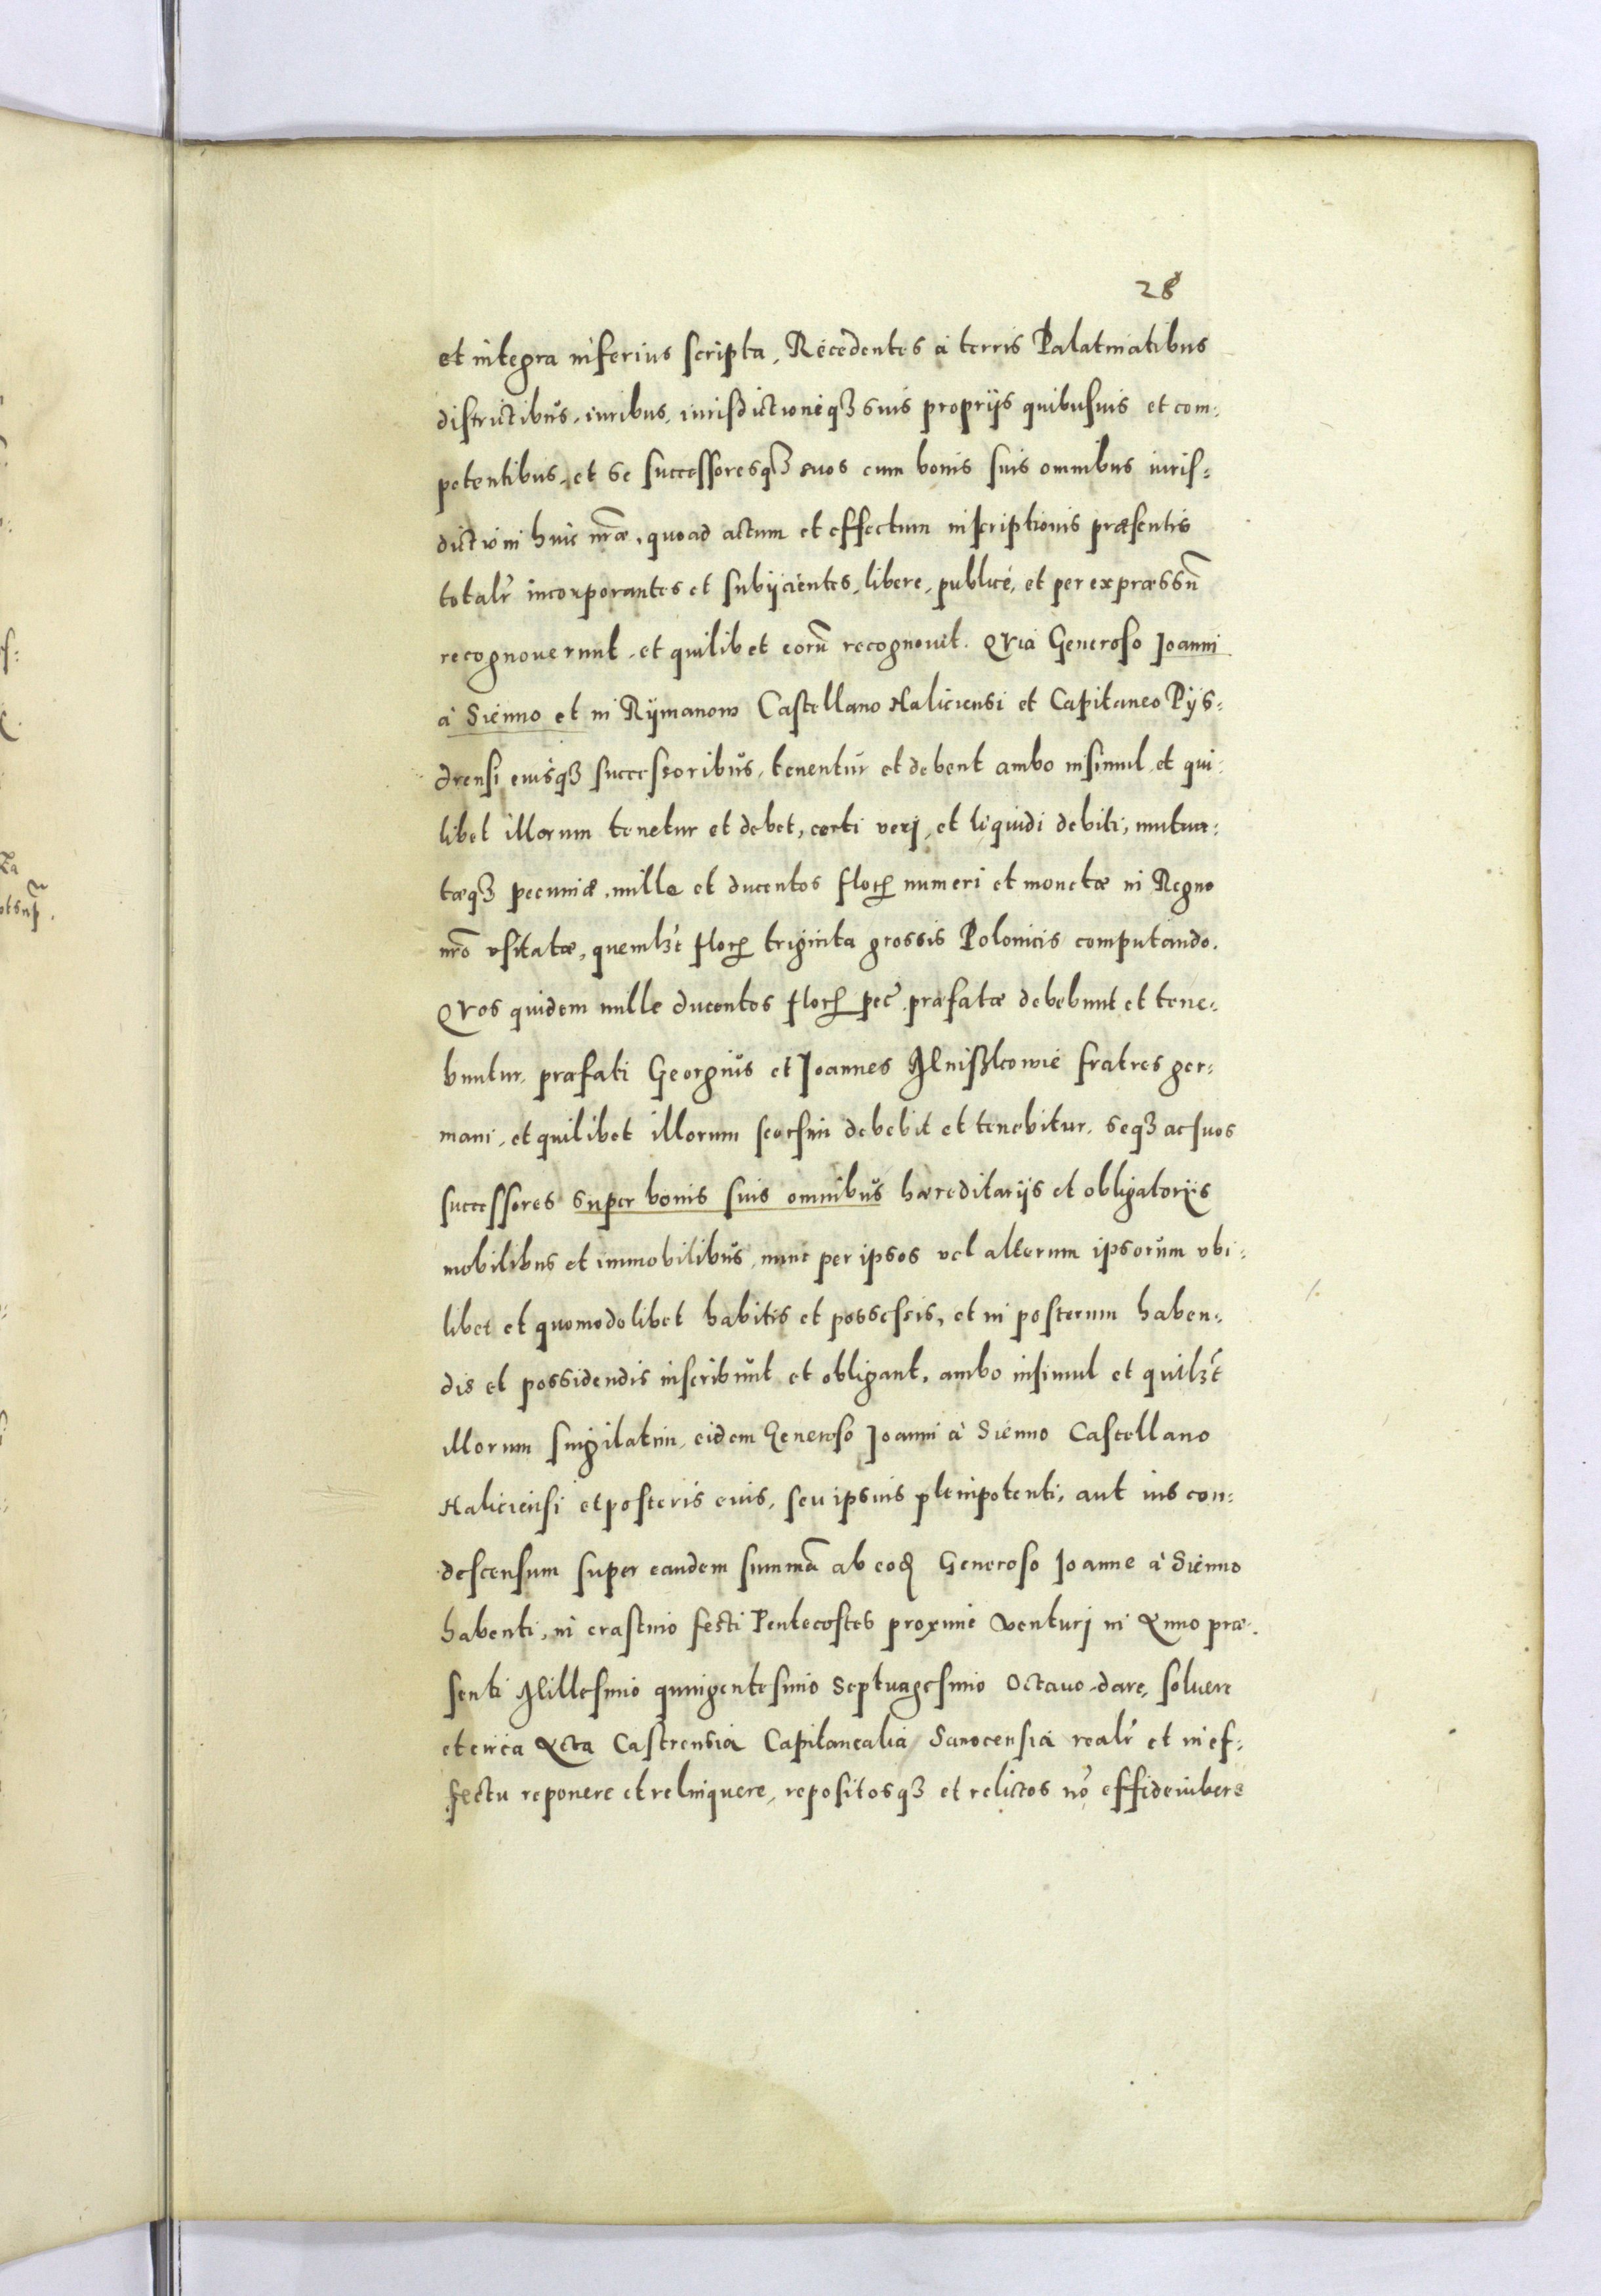 28
et integra inferius scripta, Recedentes à terris Palatinatibus
districtibus, iuribus, iurisdictioneq3 suis proprijs quibusuis et com:
petentibus, et se successoresq3 suos cum bonis suis omnibus iuris:
dictioni huic nr̃æ, quoad actum et effectum inscriptionis præsentis
totalr̃ incorporantes et subijcientes, libere, publicè, et per expræssũ
recognouerunt, et quilibet eorũ recognouit. Qvia Generoso Joanni
à Sienno et in Rÿmanow Castellano Haliciensi et Capitaneo Pÿs:
drensi eiusq3 successoribus, tenentur et debent ambo insimul, et qui:
libet illorum tenetur et debet, certi verj, et liquidi debiti, mutua:
tæq3 pecuniæ, mille et ducentos floꝝ numeri et monetæ in Regno
nr̃o vsitatæ, queml3t floꝝ triginta grossis Polonicis computando.
Qvos quidem mille ducentos floꝝ pec̃ præfatæ debebunt et tene:
buntur, præfati Georgius et Joannes Mniss̷kowie fratres ger:
mani, et quilibet illorum seorsim debebit et tenebitur, seq3 ac suos
successores super bonis suis omnibus hæreditarijs et obligatorijs
mobilibus et immobilibus, nunc per ipsos vel alterum ipsorum vbi:
libet et quomodolibet habitis et possessis, et in posterum haben:
dis et possidendis inscribunt et obligant, ambo insimul et quil3t
illorum singilatim, eidem Generoso Joanni à Sienno Castellano
Haliciensi et posteris eius, seu ipsius plenipotenti, aut ius con:
descensum super eandem summã ab eod̃ Generoso Joanne à Sienno
habenti, in crastino festi Pentecostes proxime venturj in Anno præ:
senti Millesimo quingentesimo Septuagesimo Octauo dare, soluere
et circa Acta Castrensia Capitanealia Sanocensia realr̃ et in ef:
fectu reponere et relinquere, repositosq3 et relictos nõ effideiubere